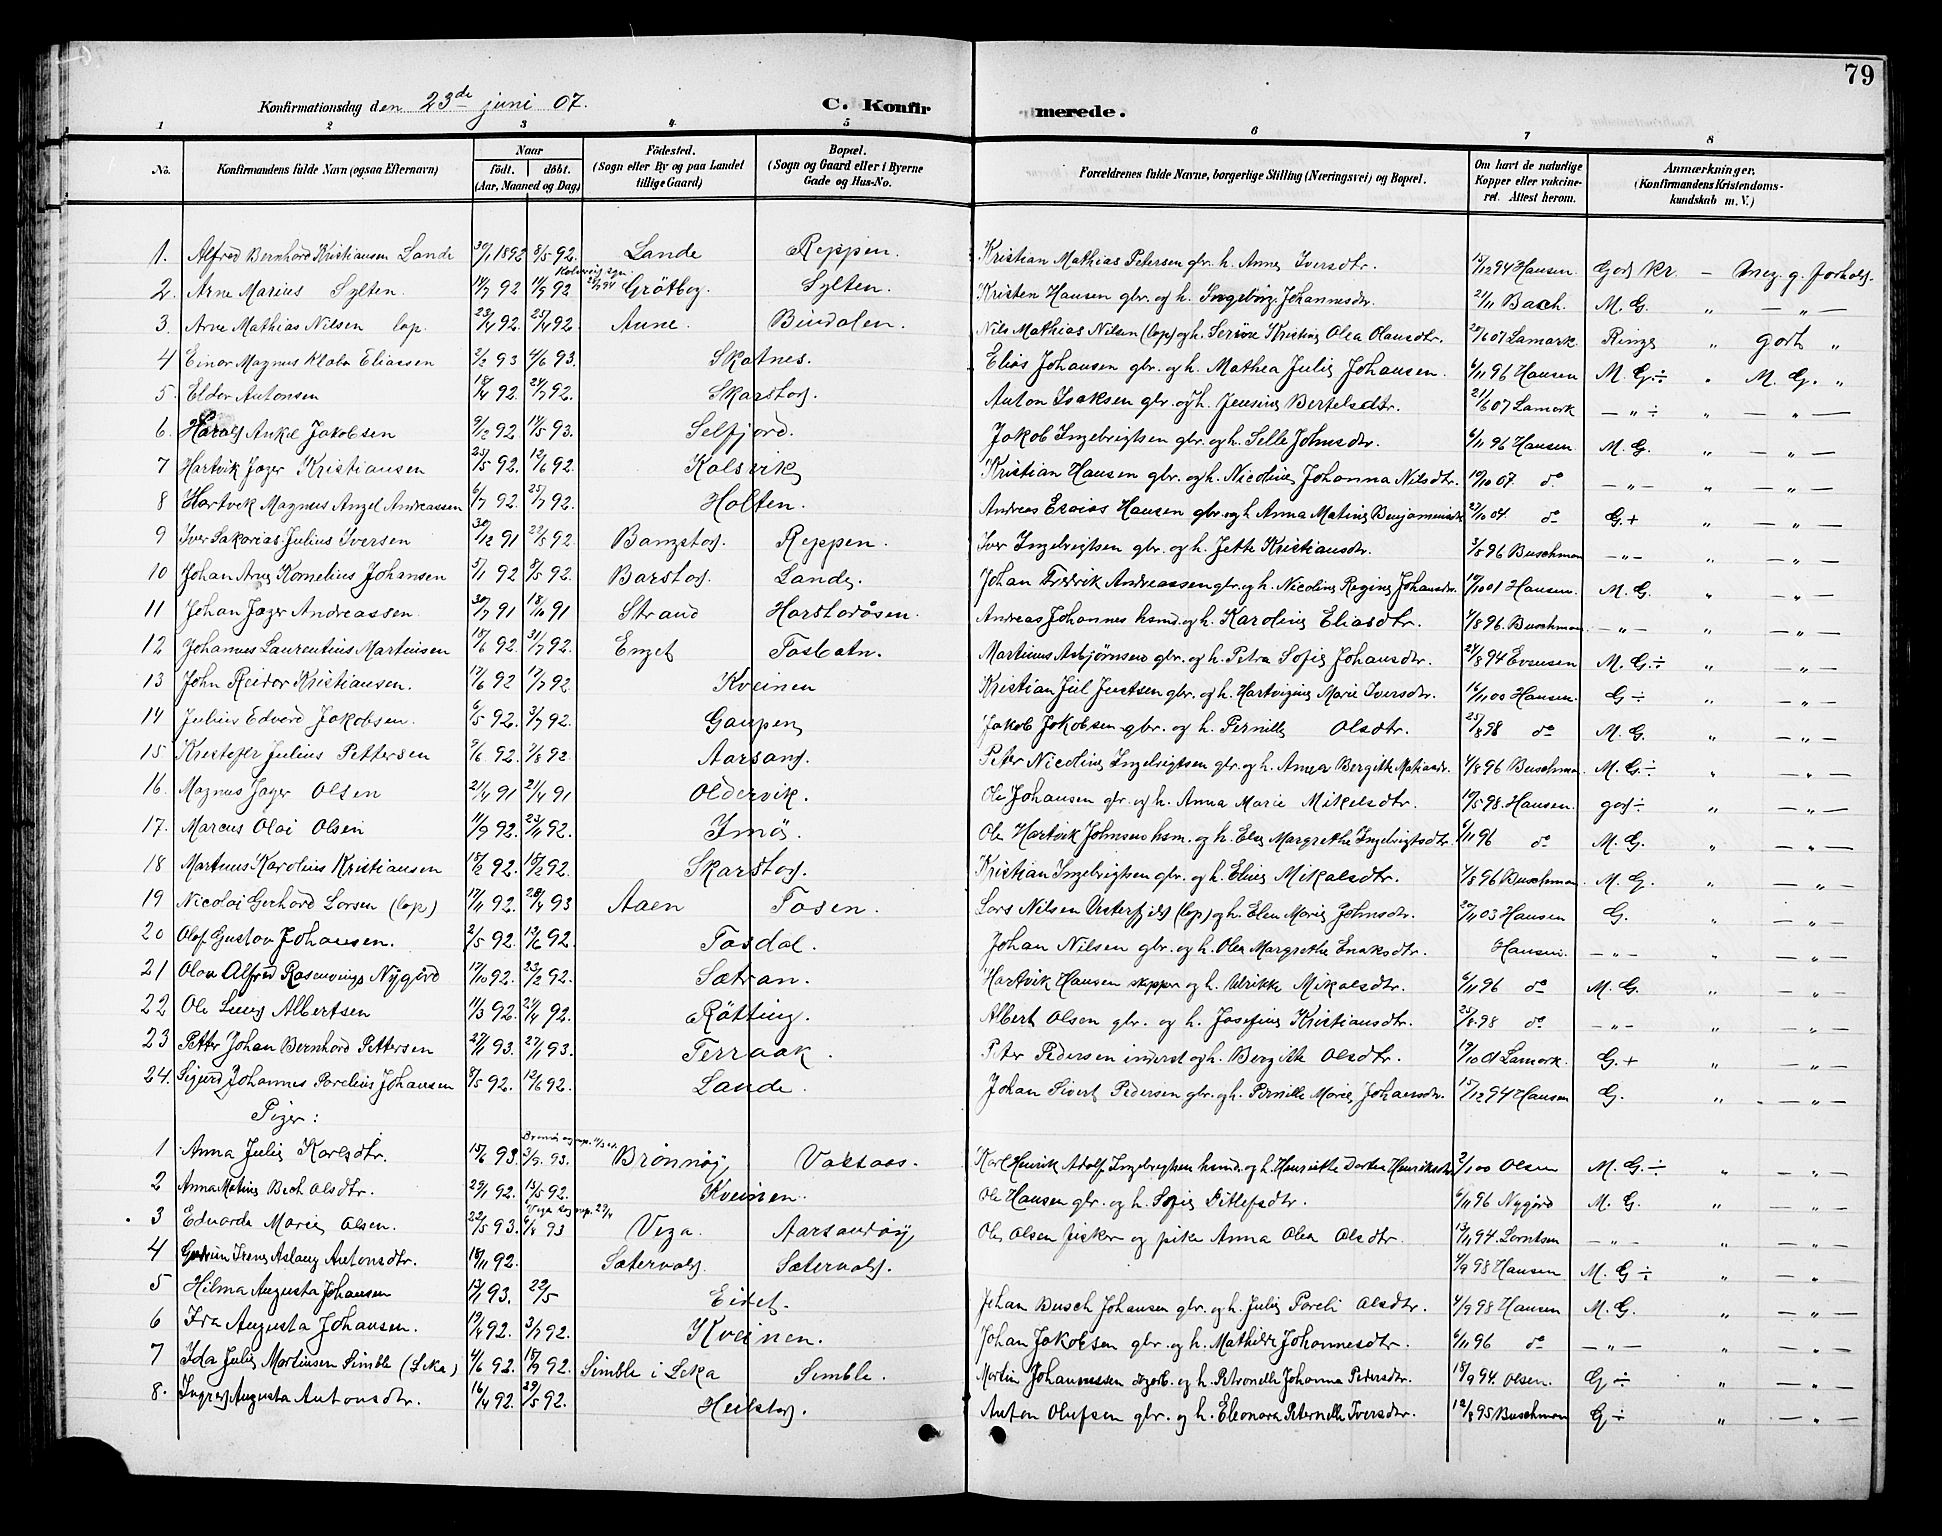 79
Konfirmationsdag den 23de juni 07. C. Konfirmerede.
1 2 3 4 5 6 7 8
No. Konfirmandens fulde Navn (ogsaa Efternavn) Naar født. døbt. (Aar, Maaned og Dag) Fødested. (Sogn eller By og paa Landet tillige Gaard) Bopæl. (Sogn og Gaard eller i Byerne Gade og Hus-No. Forældrenes fulde Navne, borgerlige Stilling (Næringsvei) og Bopæl. Om havt de naturlige Kopper eller vakcineret. Attest herom. Anmærkninger. (Konfirmandens Kristendomskundskab m. V.)
1. Alfred Bernhard Kristiansen Lande 30/1 1892 8/5 92. Lande Reppen. Kristian Mathias Petersen gbr. h. Anne Iversdtr. 15/12 94 Hansen God Kr. — meg. g. forhold.
2. Arne Marius Sylten. 14/7 92 Grøtbog. Sylten. Kristen Hansen gbr. og h. Ingeborg Johannesdtr. 21/11 Bach. M. G. " — " —
3. Arne Mathias Nilsen lap. 23/4 92. 25/4 92. Aune. Bindalen. Nils Mathias Nilsen (lap) og h. Serine Kristine Olea Olausdtr. 20/6 07 Lamark. Ringe " godt "
4 Einar Magnus Eliassen 2/2 93 4/6 93. Skatnes. Elias Johansen gbr. og h. Mathea Julie Johansen. 6/11 96 Hansen M. G ÷ " M. G. "
5. Eldor Antonsen 18/4 92. 24/7 92. Skarstad. Anton Isaksen gbr. og h. Jensine Bertelsdtr. 21/6 07 Lamark — " ÷ " — " —
6. Harald Ankil Jakobsen 9/12 92 14/5 93. Selfjord. Jakob Ingebrigtsen gbr. og h. Selle Johnsdtr. 6/11 96 Hansen M. G. " — " —
7 Hartvik Jager Kristiansen 23/5 92. 12/6 92. Kalsvik Kristian Hansen gbr. og h. Nicoline Johanna Nilsdtr. 19/10 07. do — " — " — " —
8 Hartvik Magnus Angel Andreassen 6/7 92. 25/7 92. Holten. Andreas Esaias Hansen gbr. og h. Anna Matine Benjaminsdtr. 27/10 04. do G + " — " —
9 Iver Sakarias Julius Iversen 30/12 91 22/5 92. Bangstad. Reppen. Iver Ingebrigtsen gbr. og h. Jette Kristiansdtr. 3/8 96 Buschman — " — " — " —
10 Johan Arne Kornelius Johansen 5/1 92 8/5 92. Barstad. Lande. Johan Fredrik Andreassen gbr. og h. Nicoline Regine Johansdtr. 19/10 01 Hansen. M. G. " — " —
11 Johan Jager Andreassen 30/7 91 18/10 91 Strand Harstadåsen. Andreas Johannes hsmd. og h. Karoline Eliasdtr. 4/8 96. Buschman — " — " — " —
12 Johannes Laurentius Martinisen 15/6 92. 31/7 92. Enget Tosbotn. Martinus Asbjørnsen gbr. og h. Petra Sofie Johansdtr. 24/8 94 Evensen M. G. ÷ " — " —
13 John Reidar Kristiansen. 17/6 92 17/7 92. Kveinen Kristian Jul Jentsen gbr. og h. Hartvigine Marie Iversdtr. 16/11 00 Hansen. G ÷ " — " —
14 Julius Edvard Jakobsen. 6/5 92. 3/7 92. Gaupen Jakob Jakobsen gbr. og h. Pernille Olsdtr. 25/8 98 do M. G. " — " —
15 Kristofer Julius Pettersen 9/6 92 7/8 92. Aarsand. Peter Nicolius Ingebrigtsen gbr. og h. Anna Bergitte Matiasdtr. 4/8 96 Buschman. M. G ÷ " — " —
16. Magnus Jager Olsen 21/4 91 21/4 91 Oldervik. Ole Johansen gbr. og h. Anna Marie Mikelsdtr. 19/5 98. Hansen. god ÷ " — " —
17. Marcus Olai Olsen 11/9 92. 23/11 92. Imø. Ole Hartvik Johnsen hsm. og h. Else Margrethe Ingebrigtsdtr. 6/11 96 do M. G. " — " —
18 Martinus Karolius Kristiansen 15/2 92. 15/2 92. Skarstad. Kristian Ingebrigtsen gbr. og h. Eline Mikalsdtr. 4/8 96 Buschman. M. G. " — " —
19 Nicolai Gerhard Larsen (lap) 17/11 92. 28/4 93 Aaen Tosen. Lars Nilsen Vesterfjeld (lap) og h. Elen Marie Johnsdtr. 20/11 03 Hansen G. " — " —
20 Olaf Gustav Johansen. 2/5 92. 19/6 92. Tosdal. Johan Nilsen gbr. og h. Olea Margrethe Enoksdtr. Hansen — " — " — " —
21 Olav Alfred Rosenvinge Nygård 17/10 92. 23/2 92. Sætran. Hartvik Hansen skipper og h. Ulrikke Mikalsdtr. 6/11 96 do M. G. " — " —
22 Ole Albertsen 11/3 92 24/4 92. Røtting. Albert Olsen gbr. og h. Josefine Kristiansdtr. 25/8 98 do — " — " — " —
23 Petter Johan Bernhard Pettersen 27/1 93. 27/1 93. Terraak. Peter Pedersen inderst og h. Bergitte Olsdtr. 19/10 01 Lamark. G + " — " —
24. Sigurd Johannes Parelius Johansen 8/5 92. 12/6 92. Lande. Johan Sivert Pedersen gbr. og h. Pernille Marie Johansdtr. 15/12 94 Hansen G. " — " —
Piger:
1 Anna Julie Karlsdtr. 15/6 93. 3/9. 93. Brønnøy Vastaas. Karl Henrik Adolf Ingebrigtsen hsmd. og h. Henriette Dortea Henriksdtr 2/1 00 Olsen M. G ÷ " — " —
2 Anna Matine Bech Olsdtr. 29/1 92. 15/5 92. Kveinen. Ole Hansen gbr. og h. Sofie Ditlefsdtr. 6/11 96 Nygård M. G. " — " —
3 Edvarda Marie Olsen. 22/5 93. 4/8 93 Vega. Aarsandøy Ole Olsen fisker og pike Anna Olea Olsdtr. 13/11 94. Lorntsen — " — " — " —
4 Gudrun Irene Aslaug Antonsdtr. 18/11 92. Sætervald. Sætervald. 4/9 98 Hansen M. G ÷ " — " —
5 Hilma Augusta Johansen 13/1 93. 22/5 Eidet. Johan Busch Johansen gbr. og h. Julie Pareli Olsdtr. 4/9 98 Hansen M. G. " — " —
6 Ida Augusta Johansen. 19/4 92. 3/7 92. Kveinen. Johan Jakobsen gbr. og h. Mathilde Johannesdtr. 6/11 96 do — " — " — " —
7 Ida Julie Martinsen Simble (Leka) 4/6 92. 18/9 92. Simble i Leka Simble. Martin Johannessen og h. Petronelle Johanna Pedersdtr. 18/9 94. Olsen. G ÷ " — " —
8. Ingred Augusta Antonsdtr. 16/4 92. 29/5 92. Heilstad. Anton Olufsen gbr. og h. Eleonara Peternelle Iversdtr. 12/8 95 Buschman G ÷ " — " —